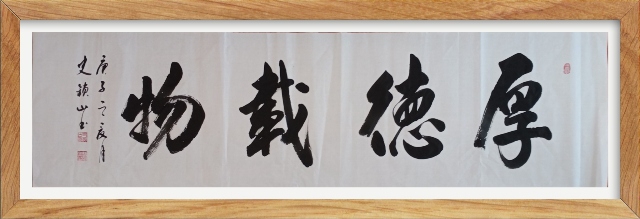 厚德载物
庚子之夏月
史镇山书